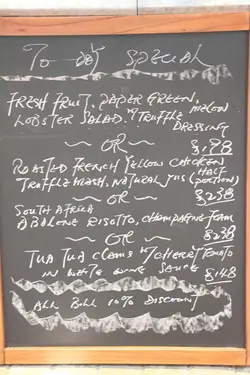 TO-DAY SPECIAL
FRESH FRUIT, PAPER GREEN,
LOBSTER SALAD W/ TRUFFLE MELON
DRESSING
$198
OR
ROASTED FRENCH YELLOW CHICKEN
TRUFFLE MASH, NATURAL JUS HALF (PORTION)
OR $238
SOUTH AFRICA
ABALONE RISOTTO, CHAMPAGNE FOAM
OR $238
TUA TUA CLAMS W/ CHERRY TOMATO
IN WHITE WINE SAUCE $148
ALL BILL 10% DISCOUNT